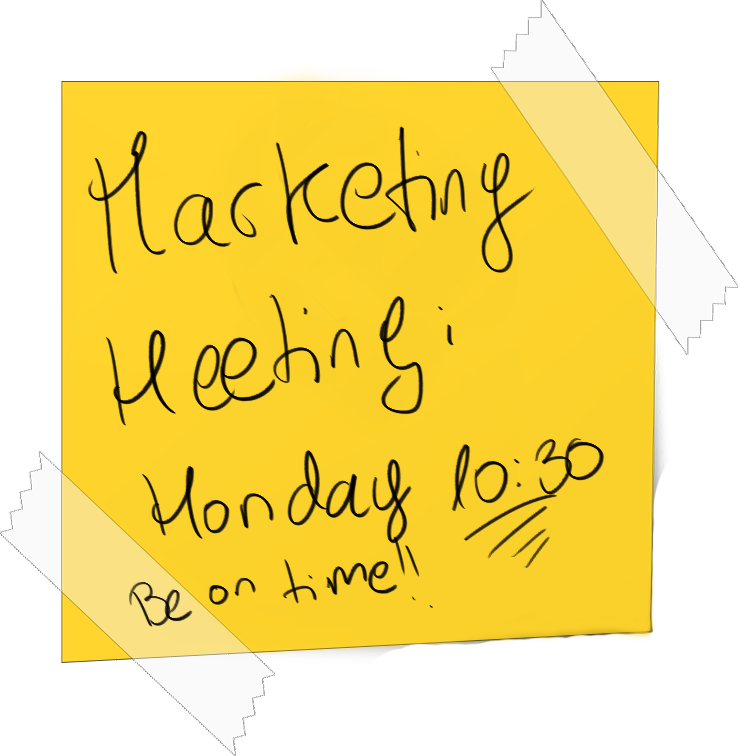 Marketing
Meeting:
Monday 10:30
Be on time!!